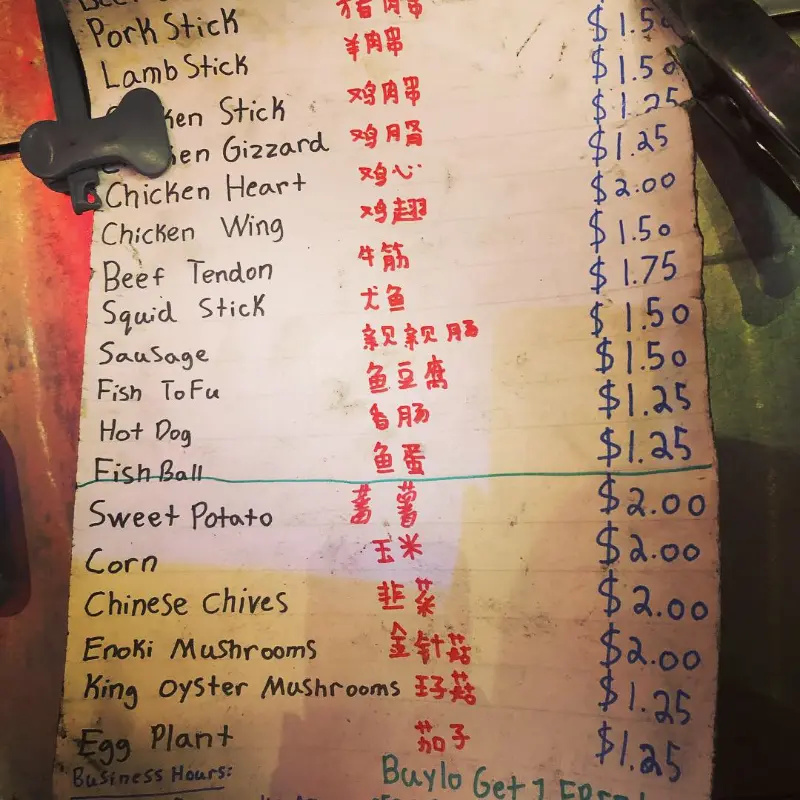 Pork Stick 猪肉串 $1.50
Lamb Stick 羊肉串 $1.50
Stick 鸡肉串 $1.25
Gizzard 鸡肾 $1.25
Chicken Heart 鸡心 $2.00
Chicken Wing 鸡翅 $1.50
Beef Tendon 牛筋 $1.75
Squid Stick 尤鱼 $1.50
Sausage 亲亲肠 $1.50
Fish ToFu 鱼豆腐 $1.25
Hot Dog 香肠 $1.25
Fish Ball 鱼蛋
Sweet Potato 蕃薯 $2.00
Corn 玉米 $2.00
Chinese Chives 韭菜 $2.00
Enoki Mushrooms 金针菇 $2.00
King Oyster Mushrooms 王子菇 $1.25
Egg Plant 茄子 $1.25
Business Hours: Buy10 Get 1